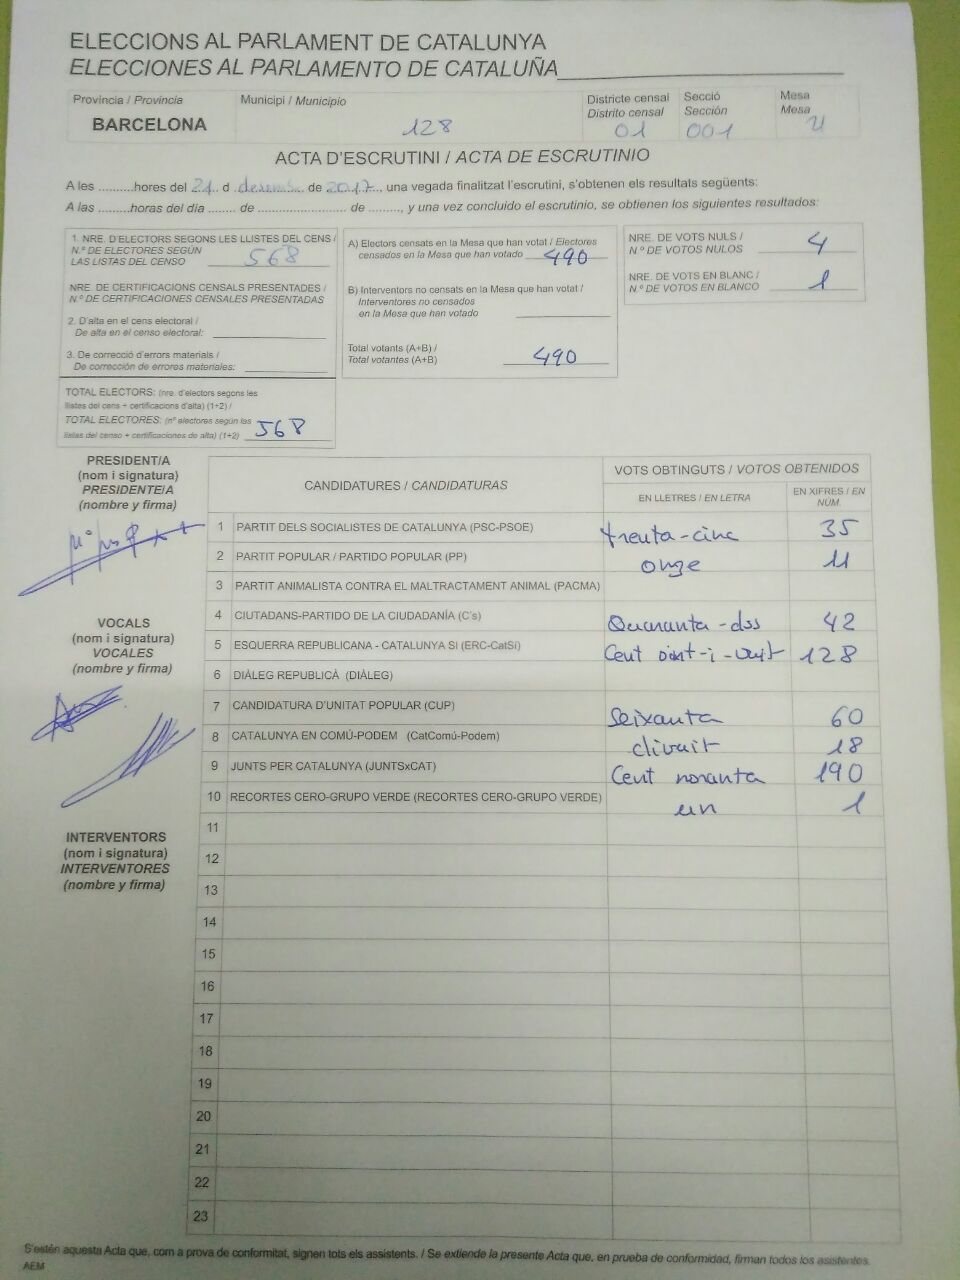 ELECCIONS AL PARLAMENT DE CATALUNYA
ELECCIONES AL PARLAMENTO DE CATALUÑA
Provincia / Provincia
BARCELONA
Municipi / Municipio
128
Districte censal
Distrito censal
01
Secció
Sección
001
Mesa
Mesa
U
ACTA D'ESCRUTINI / ACTA DE ESCRUTINIO
A les ..........hores del 21 d desembre de 2017, una vegada finalitzat l'escrutini, s'obtenen els resultats següents:
A las ..........horas del día ....... de ....................... de ........., y una vez concluido el escrutinio, se obtienen los siguientes resultados:
1. NRE. D'ELECTORS SEGONS LES LLISTES DEL CENS /
N.º DE ELECTORES SEGÚN
LAS LISTAS DEL CENSO 568
NRE. DE CERTIFICACIONS CENSALS PRESENTADES /
N.º DE CERTIFICACIONES CENSALES PRESENTADAS
2. D'alta en el cens electoral /
De alta en el censo electoral:
3. De correcció d'errors materials /
De corrección de errores materiales:
TOTAL ELECTORS: (nre. d'electors segons les
llistes del cens + certificacions d'alta) (1+2) /
TOTAL ELECTORES: (nº electores según las
listas del censo + certificaciones de alta) (1+2) 568
A) Electors censats en la Mesa que han votat / Electores
censados en la Mesa que han votado 490
B) Interventors no censats en la Mesa que han votat /
Interventores no censados
en la Mesa que han votado
Total votants (A+B) /
Total votantes (A+B) 490
NRE. DE VOTS NULS /
N.º DE VOTOS NULOS 4
NRE. DE VOTS EN BLANC /
N.º DE VOTOS EN BLANCO 1
PRESIDENT/A
(nom i signatura)
PRESIDENTE/A
(nombre y firma)
VOCALS
(nom i signatura)
VOCALES
(nombre y firma)
INTERVENTORS
(nom i signatura)
INTERVENTORES
(nombre y firma)
CANDIDATURES / CANDIDATURAS
VOTS OBTINGUTS / VOTOS OBTENIDOS
EN LLETRES / EN LETRA
EN XIFRES / EN NÚM.
1 PARTIT DELS SOCIALISTES DE CATALUNYA (PSC-PSOE) trenta-cinc 35
2 PARTIT POPULAR / PARTIDO POPULAR (PP) onze 11
3 PARTIT ANIMALISTA CONTRA EL MALTRACTAMENT ANIMAL (PACMA)
4 CIUTADANS-PARTIDO DE LA CIUDADANÍA (C's) Quaranta-dos 42
5 ESQUERRA REPUBLICANA - CATALUNYA SI (ERC-CatSí) Cent vint-i-vuit 128
6 DIÀLEG REPUBLICÀ (DIÀLEG)
7 CANDIDATURA D'UNITAT POPULAR (CUP) Seixanta 60
8 CATALUNYA EN COMÚ-PODEM (CatComú-Podem) divuit 18
9 JUNTS PER CATALUNYA (JUNTSxCAT) Cent noranta 190
10 RECORTES CERO-GRUPO VERDE (RECORTES CERO-GRUPO VERDE) un 1
11
12
13
14
15
16
17
18
19
20
21
22
23
S'estén aquesta Acta que, com a prova de conformitat, signen tots els assistents. / Se extiende la presente Acta que, en prueba de conformidad, firman todos los asistentes.
AEM